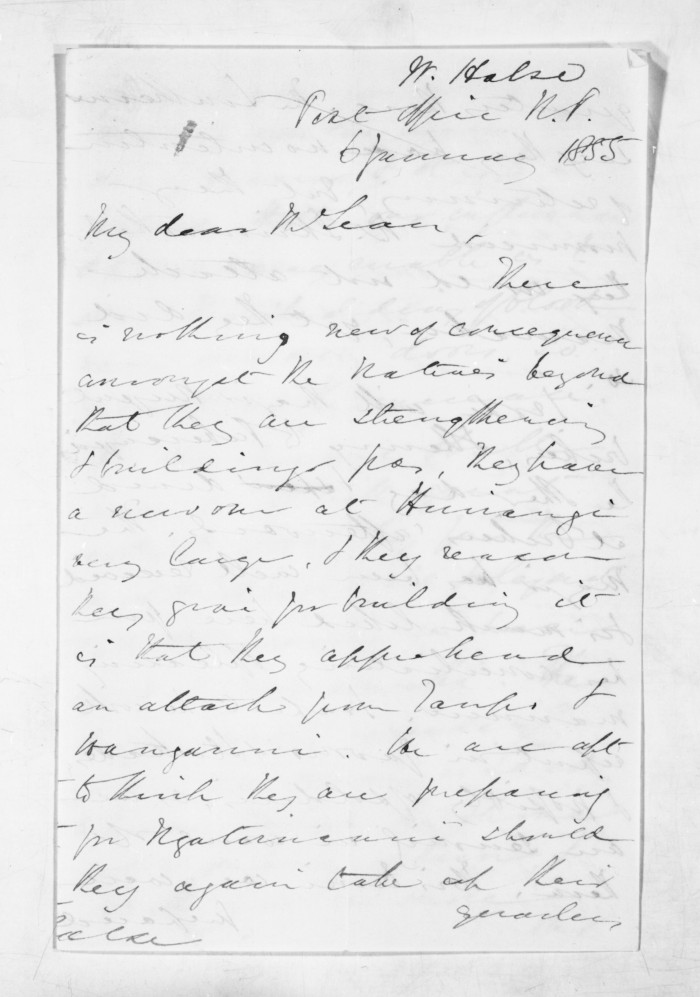 W. Halse
Post Office N.P.
6 January 1855
My dear McLean,
There
is nothing new of consequence
amongst the Natives beyond
that they are strengthening
& building pas, they have
a new one at Huirangi
very large, & they reason
they give for building it
is that they apprehend
an attack from Taupo &
Wanganui. We are apt
to think they are preparing
for Ngatiruanui should
they again take up their
Halse